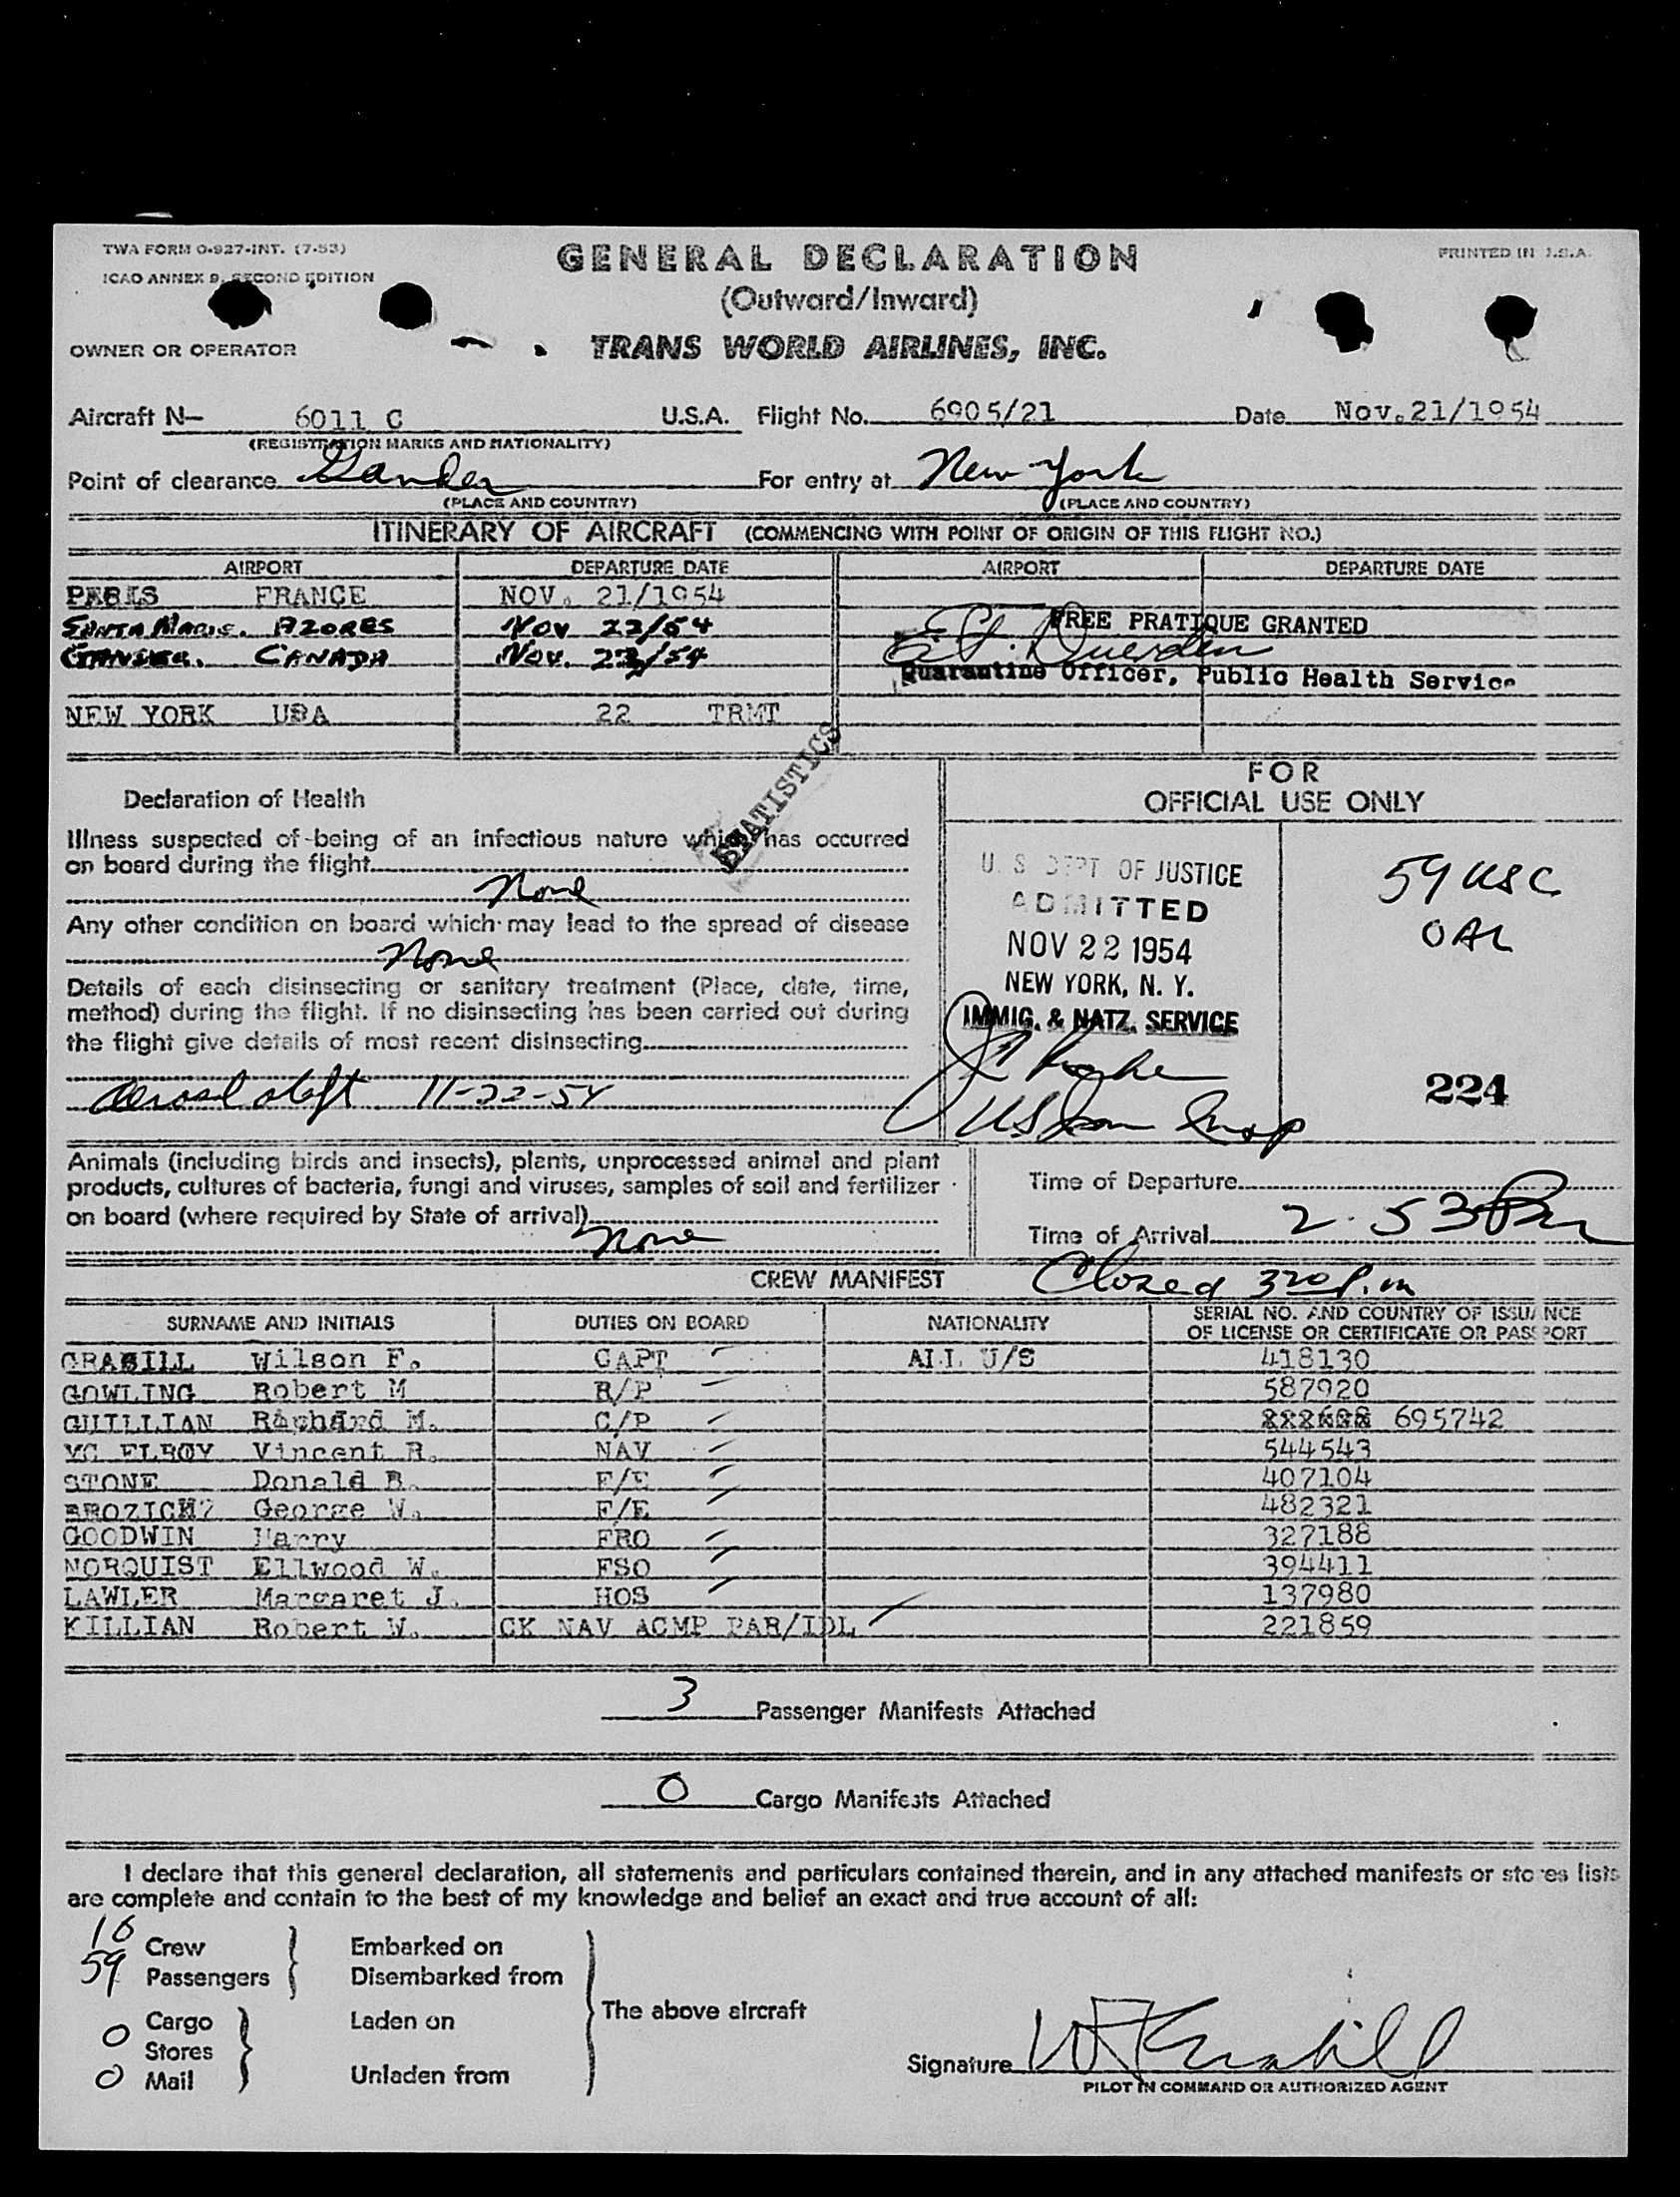 TWA FORM O-927-INT. (7-53)
ICAO ANNEX 9, SECOND EDITION
PRINTED IN U.S.A.
GENERAL DECLARATION
(Outward/Inward)
OWNER OR OPERATOR TRANS WORLD AIRLINES, INC.
Aircraft N- 6011 C U.S.A. Flight No. 6905/21 Date Nov.21/1954
(REGISTRATION MARKS AND NATIONALITY)
Point of clearance Gander For entry at New York
(PLACE AND COUNTRY) (PLACE AND COUNTRY)
ITINERARY OF AIRCRAFT (COMMENCING WITH POINT OF ORIGIN OF THIS FLIGHT NO.)
AIRPORT DEPARTURE DATE AIRPORT DEPARTURE DATE
PARIS FRANCE NOV. 21/1954
SANTA MARIA. AZORES NOV 22/54 FREE PRATIQUE GRANTED
GANDER. CANADA NOV. 22/54
Quarantine Officer, Public Health Service
NEW YORK USA 22 TRMT
STATISTICS
Declaration of Health
Illness suspected of being of an infectious nature which has occurred
on board during the flight
None
Any other condition on board which may lead to the spread of disease
None
Details of each disinsecting or sanitary treatment (Place, date, time,
method) during the flight. If no disinsecting has been carried out during
the flight give details of most recent disinsecting
Aerosol aloft 11-22-54
FOR
OFFICIAL USE ONLY
U. S. DEPT OF JUSTICE
ADMITTED
NOV 22 1954
NEW YORK, N. Y.
IMMIG. & NATZ. SERVICE
US Imm Insp
59 USC
OAL
224
Animals (including birds and insects), plants, unprocessed animal and plant
products, cultures of bacteria, fungi and viruses, samples of soil and fertilizer
on board (where required by State of arrival)
None
Time of Departure
Time of Arrival 2.53 Pm
CREW MANIFEST Closed 320 P.m
SURNAME AND INITIALS DUTIES ON BOARD NATIONALITY SERIAL NO. AND COUNTRY OF ISSUANCE
OF LICENSE OR CERTIFICATE OR PASSPORT
GRABILL Wilson F. CAPT ALL U/S 418130
GOWLING Robert M R/P 587920
GUILLIAN Richard M. C/P 695742
MC ELROY Vincent R. NAV 544543
STONE Donald B. F/E 407104
George W. F/E 482321
GOODWIN Harry FRO 327188
NORQUIST Ellwood W. FSO 394411
LAWLER Margaret J. HOS 137980
KILLIAN Robert W. CK NAV ACMP PAR/IDL 221859
3 Passenger Manifests Attached
0 Cargo Manifests Attached
I declare that this general declaration, all statements and particulars contained therein, and in any attached manifests or stores lists
are complete and contain to the best of my knowledge and belief an exact and true account of all:
10 Crew Embarked on
59 Passengers Disembarked from
The above aircraft
0 Cargo Laden on
Stores
0 Mail Unladen from
Signature WF Grabill
PILOT IN COMMAND OR AUTHORIZED AGENT